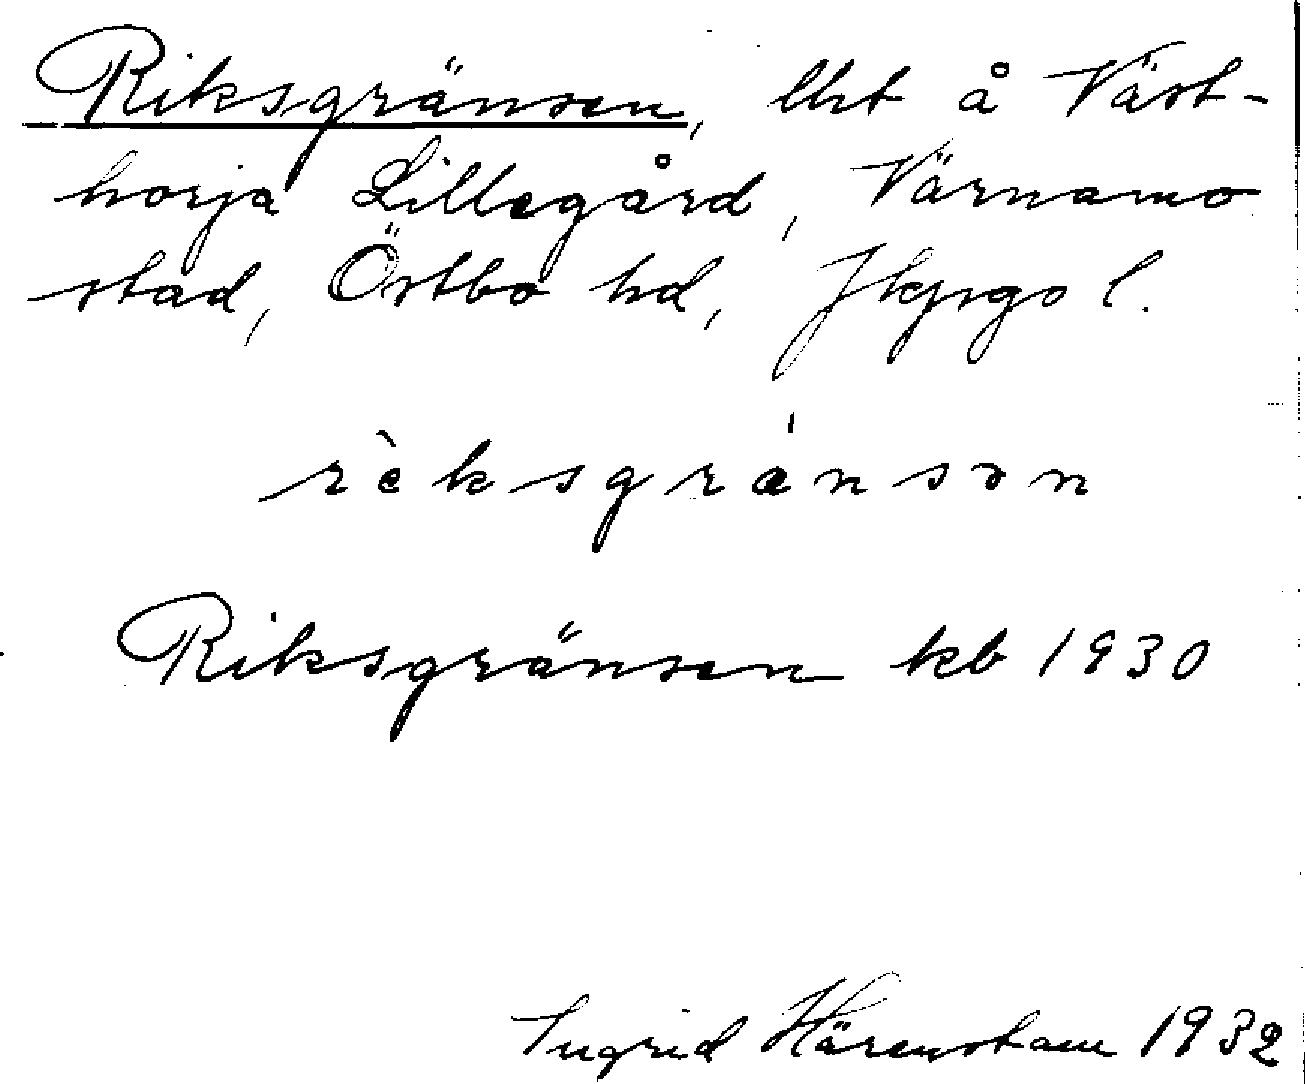 Riksgränsen, lht å Väst-
horja Lillegård, Värnamo
stad, Östbo hd, Jkpgo l.
rèksgránsən
Riksgränsen kb 1930
Ingrid Härenstam 1932